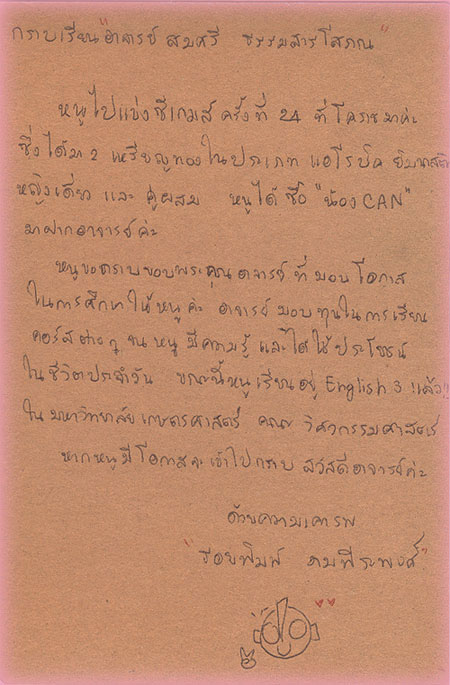 กราบเรียน "อาจารย์ สมศรี ธรรมสารโสภณ"
หนูไปแข่งซีเกมส์ ครั้งที่ 24 ที่โคราชมาค่ะ
ซึ่งได้มา 2 เหรียญทองในประเภท แอโรบิค ยิมนาสติก
หญิงเดี่ยว และ คู่ผสม หนูได้ซื้อ "น้อง CAN"
มาฝากอาจารย์ค่ะ
หนูขอกราบขอบพระคุณอาจารย์ ที่มอบโอกาส
ในการศึกษาให้หนูค่ะ อาจารย์มอบทุนในการเรียน
คอร์สต่าง ๆ จนหนูมีความรู้ และได้ใช้ประโยชน์
ในชีวิตประจำวัน ขณะนี้หนูเรียนอยู่ English 3 แล้ว!!
ในมหาวิทยาลัยเกษตรศาสตร์ คณะ วิศวกรรมศาสตร์
หากหนูมีโอกาสจะเข้าไปกราบ สวัสดีอาจารย์ค่ะ
ด้วยความเคารพ
"รอยพิมพ์